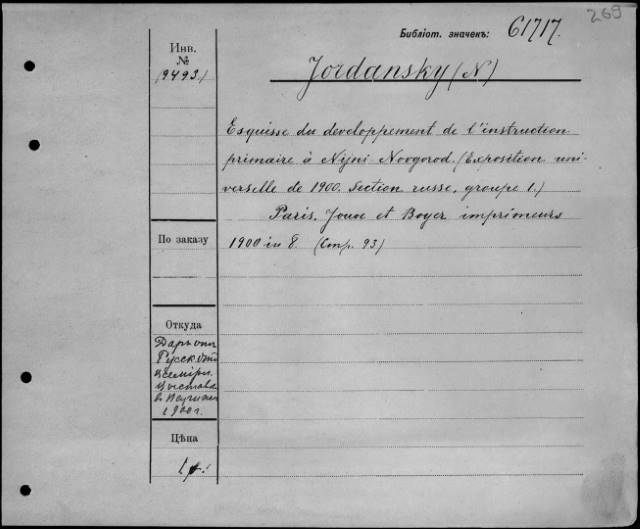 269
Библіот. значекъ: 61717.
Инв.
№
(9493.)
Jordansky (N)
Esquisse du developpement de l'instruction
primaire à Nijni Novgorod. (Exposition uni-
verselle de 1900. Section russe. groupe 1.)
Paris. Jouve et Boyer imprimeurs
1900 in 8. (Стр. 93)
По заказу
Откуда
Даръ отъ
Русск. отд.
всемірн.
выставки
въ Парижѣ
1900 г.
Цѣна
1 р.